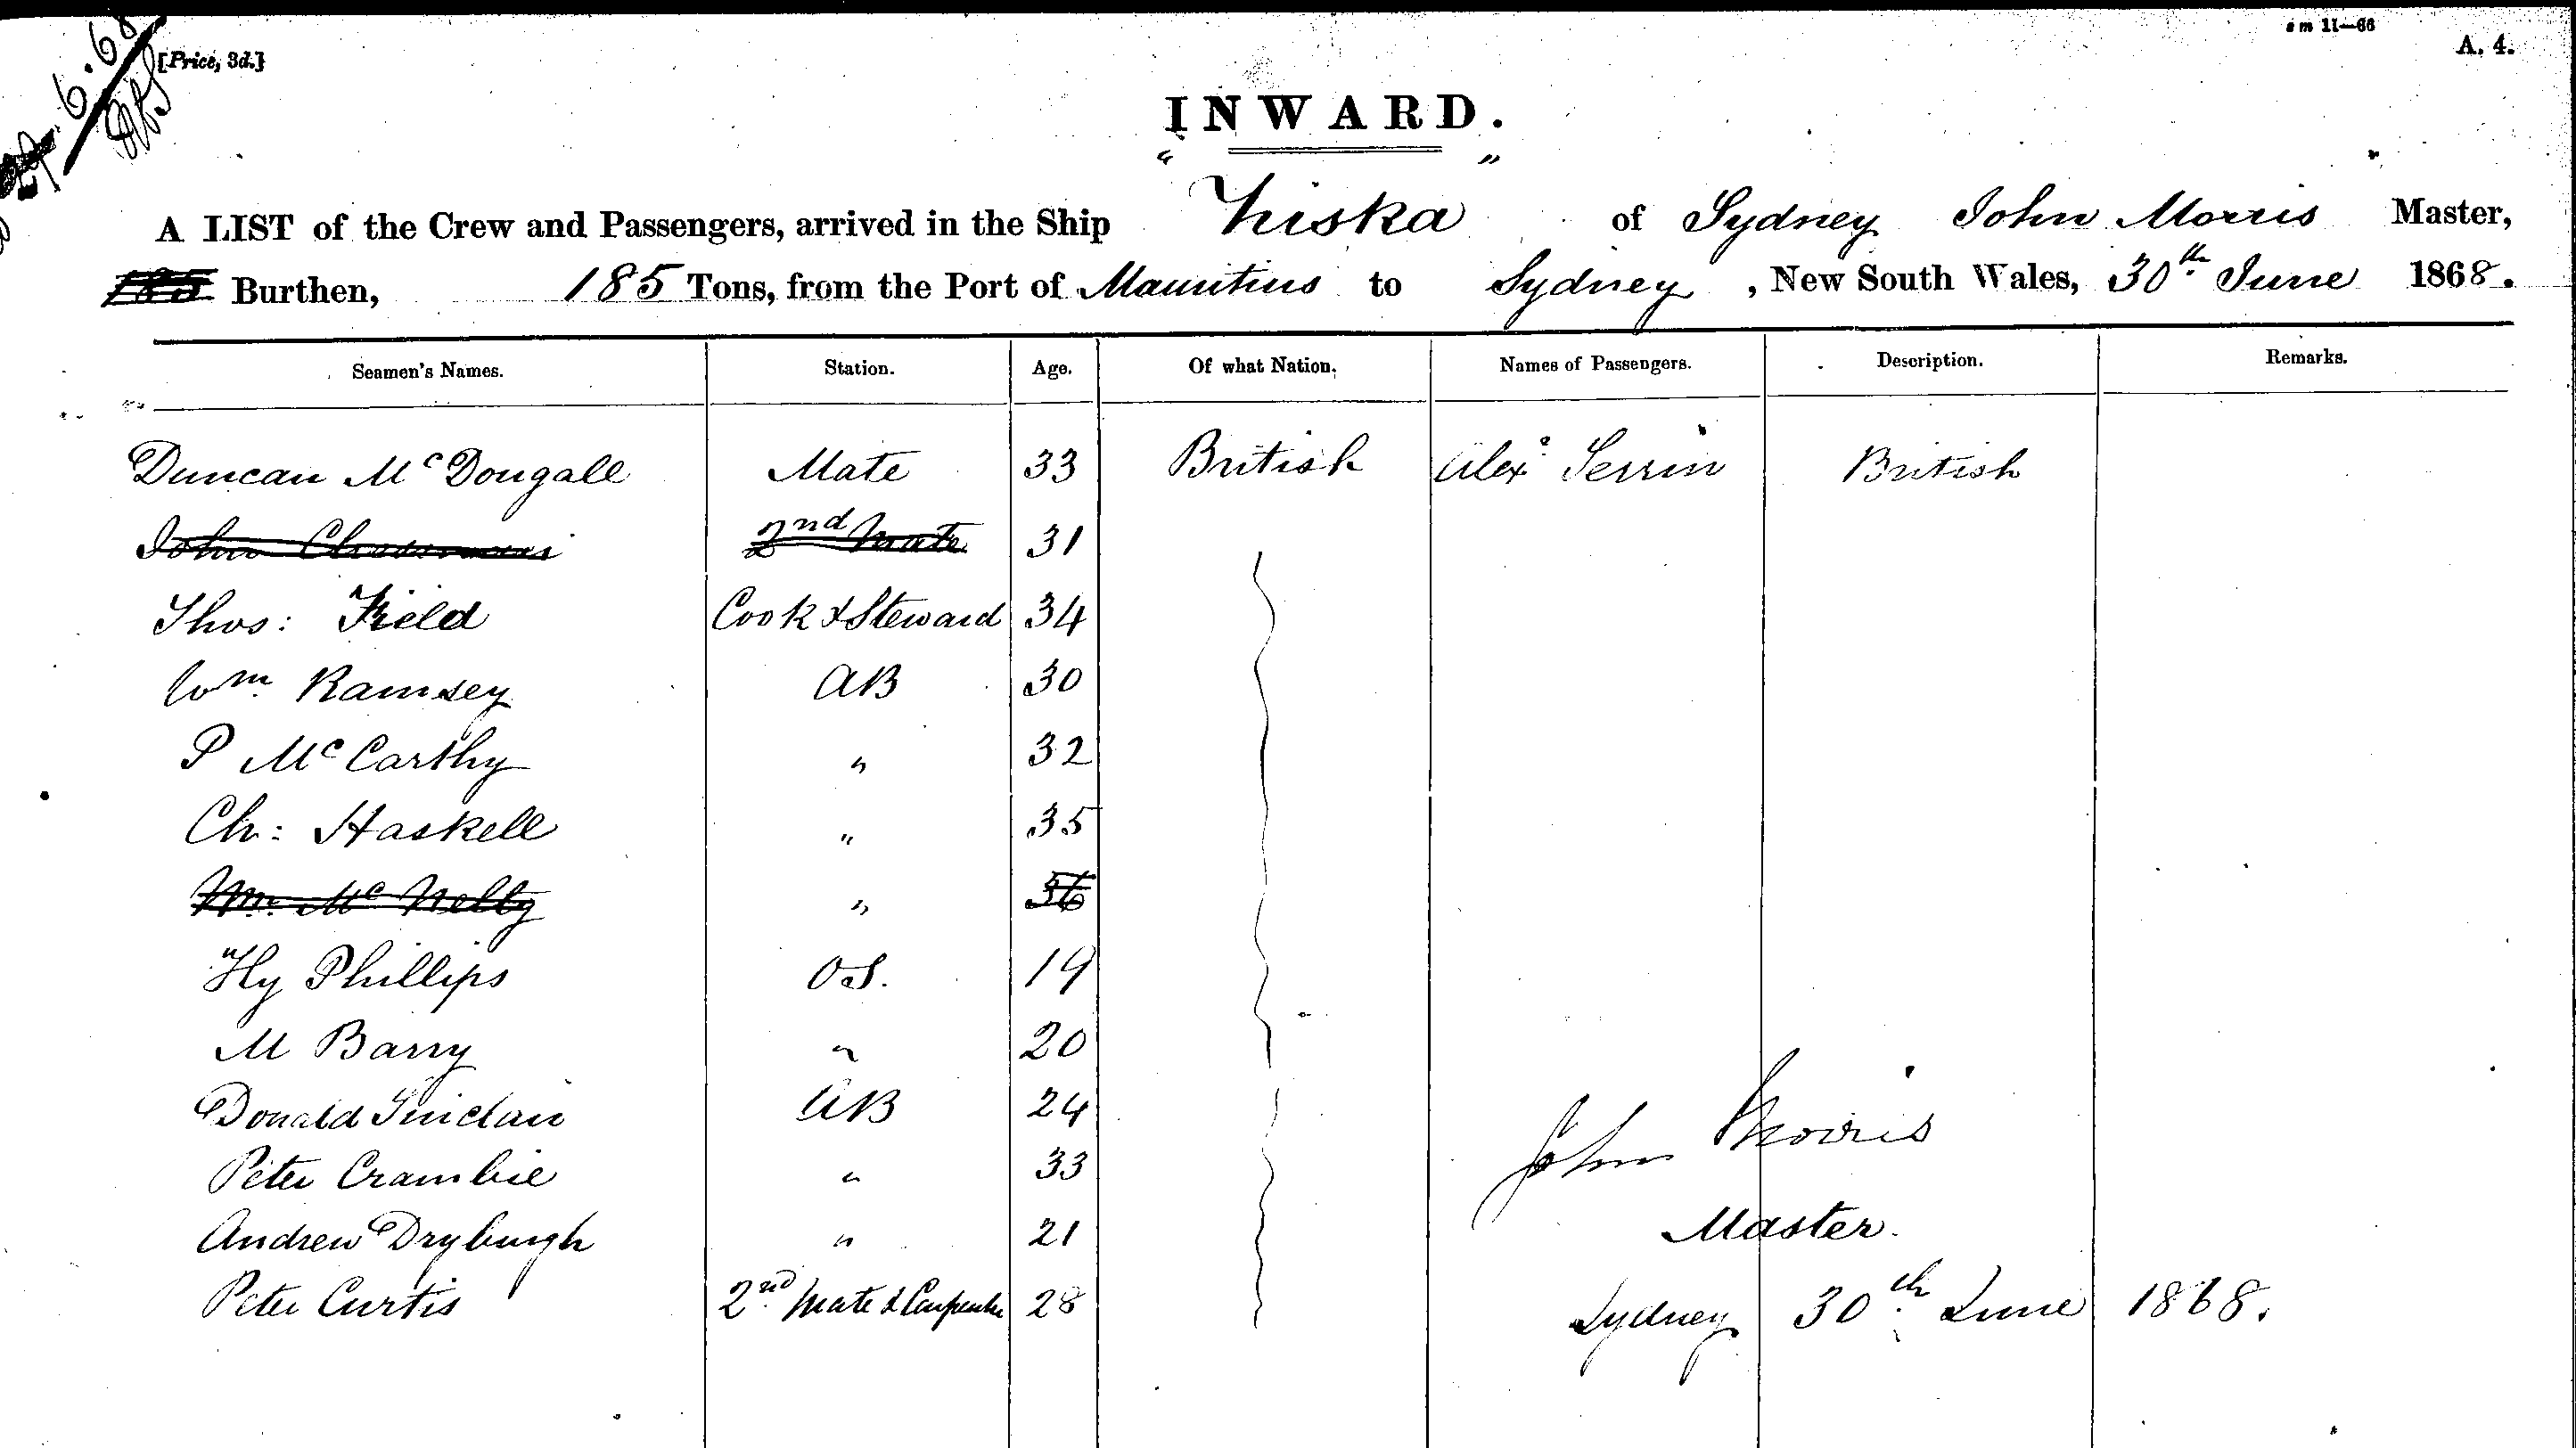 [Price, 3d.]
s m 11—66
A. 4.
29.6.68
INWARD.
A LIST of the Crew and Passengers, arrived in the Ship " Ziska " of Sydney John Morris Master,
185 Burthen, 185 Tons, from the Port of Mauritius to Sydney, New South Wales, 30th June 1868.
Seamen's Names. Station. Age. Of what Nation. Names of Passengers. Description. Remarks.
Duncan McDougall Mate 33 British Alexr Serrin British
John 2nd Mate 31
Thos: Field Cook & Steward 34
Wm. Ramsey AB 30
P McCarthy " 32
Ch: Haskell " 35
Wm. McNelly " 36
Hy Phillips OS. 19
M Barry " 20
Donald Sinclair AB 24
Peter Crambie " 33
Andrew Dryburgh " 21
Peter Curtis 2nd Mate & Carpenter 28
John Morris
Master.
Sydney 30th June 1868.